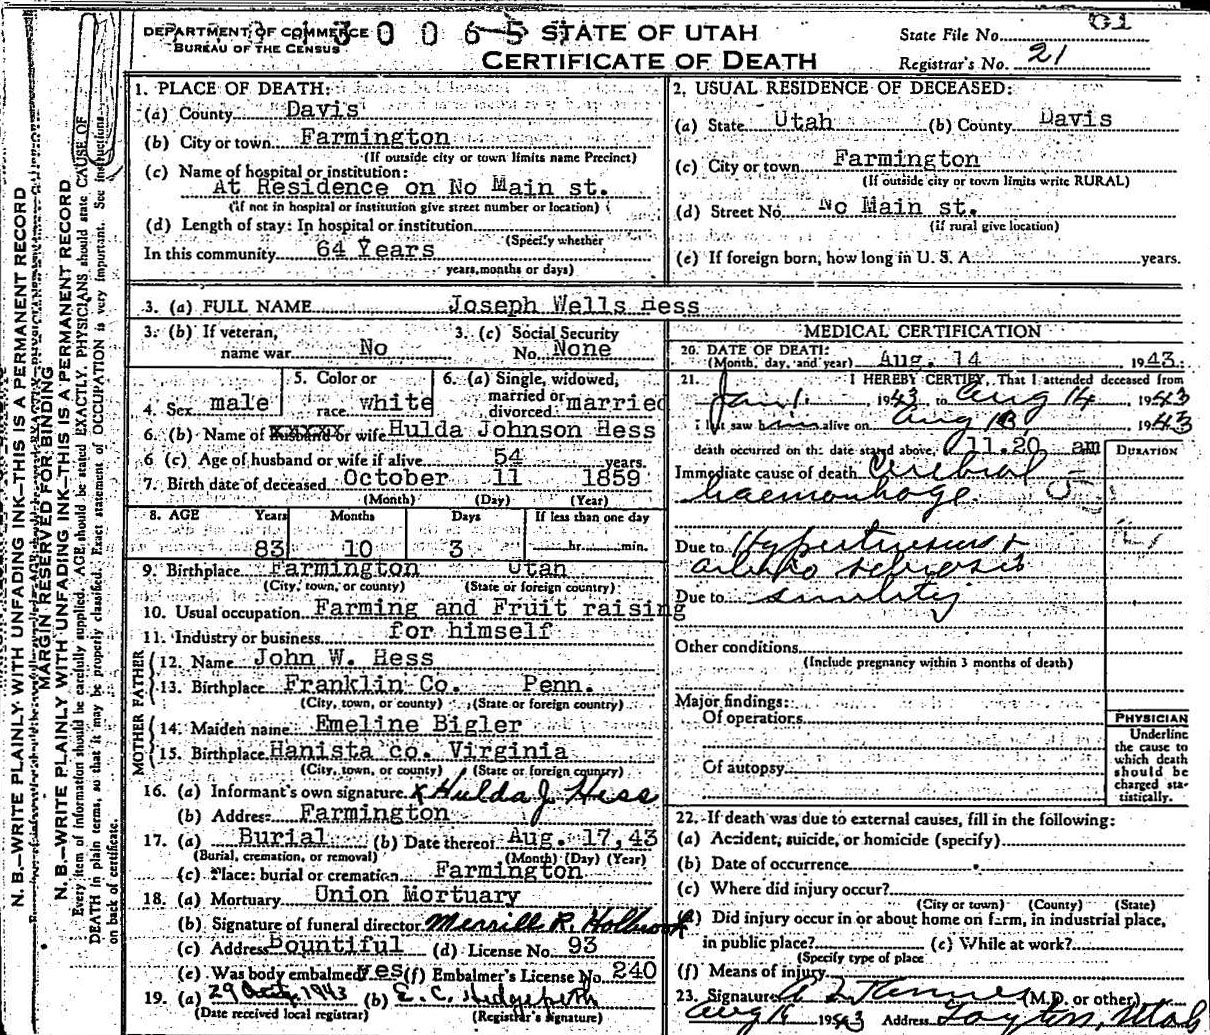 DEPARTMENT OF COMMERCE
BUREAU OF THE CENSUS
STATE OF UTAH
CERTIFICATE OF DEATH
State File No.
Registrar's No. 21
N. B.—WRITE PLAINLY WITH UNFADING INK—THIS IS A PERMANENT RECORD
MARGIN RESERVED FOR BINDING
N. B.—WRITE PLAINLY WITH UNFADING INK—THIS IS A PERMANENT RECORD
Every item of information should be carefully supplied. AGE should be stated EXACTLY. PHYSICIANS should state CAUSE OF
DEATH in plain terms, so that it may be properly classified. Exact statement of OCCUPATION is very important. See instructions
on back of certificate.
1. PLACE OF DEATH:
(a) County Davis
(b) City or town Farmington
(If outside city or town limits name Precinct)
(c) Name of hospital or institution:
At Residence on No Main st.
(If not in hospital or institution give street number or location)
(d) Length of stay: In hospital or institution
(Specify whether
In this community 64 Years
years, months or days)
2. USUAL RESIDENCE OF DECEASED:
(a) State Utah (b) County Davis
(c) City or town Farmington
(If outside city or town limits write RURAL)
(d) Street No. No Main st.
(if rural give location)
(e) If foreign born, how long in U. S. A. years.
3. (a) FULL NAME Joseph Wells Hess
3. (b) If veteran,
name war No
3. (c) Social Security
No. None
4. Sex male
5. Color or
race white
6. (a) Single, widowed,
married or
divorced: married
6. (b) Name of husband or wife Hulda Johnson Hess
6 (c) Age of husband or wife if alive 54 years.
7. Birth date of deceased October 11 1859
(Month) (Day) (Year)
8. AGE Years Months Days If less than one day
83 10 3 hr. min.
9. Birthplace Farmington Utah
(City, town, or county) (State or foreign country)
10. Usual occupation Farming and Fruit raising
11. Industry or business for himself
FATHER
12. Name John W. Hess
13. Birthplace Franklin Co. Penn.
(City, town, or county) (State or foreign country)
MOTHER
14. Maiden name Emeline Bigler
15. Birthplace Hanista co. Virginia
(City, town, or county) (State or foreign country)
16. (a) Informant's own signature x Hulda J. Hess
(b) Address Farmington
17. (a) Burial (b) Date thereof Aug. 17, 43
(Burial, cremation, or removal) (Month) (Day) (Year)
(c) Place: burial or cremation Farmington
18. (a) Mortuary Union Mortuary
(b) Signature of funeral director Merrill R. Holbrook
(c) Address Bountiful (d) License No. 93
(e) Was body embalmed Yes (f) Embalmer's License No. 240
19. (a) 1943 (b) E. C.
(Date received local registrar) (Registrar's Signature)
MEDICAL CERTIFICATION
20. DATE OF DEATH:
(Month, day, and year) Aug. 14 1943.
21. I HEREBY CERTIFY, That I attended deceased from
Jan 1. 1943, to Aug 14, 1943
I last saw him alive on Aug 1943
death occurred on the date stated above, 11.20 am
DURATION
Immediate cause of death Cerebral
haemorrhage
Due to Hypertension +
sclerosis
Due to senility
Other conditions
(Include pregnancy within 3 months of death)
Major findings:
Of operations
Of autopsy
PHYSICIAN
Underline
the cause to
which death
should be
charged sta-
tistically.
22. If death was due to external causes, fill in the following:
(a) Accident, suicide, or homicide (specify)
(b) Date of occurrence
(c) Where did injury occur?
(City or town) (County) (State)
(d) Did injury occur in or about home on farm, in industrial place,
in public place? (e) While at work?
(Specify type of place
(f) Means of injury
23. Signature (M.D. or other)
Aug 1943 Address Layton, Utah